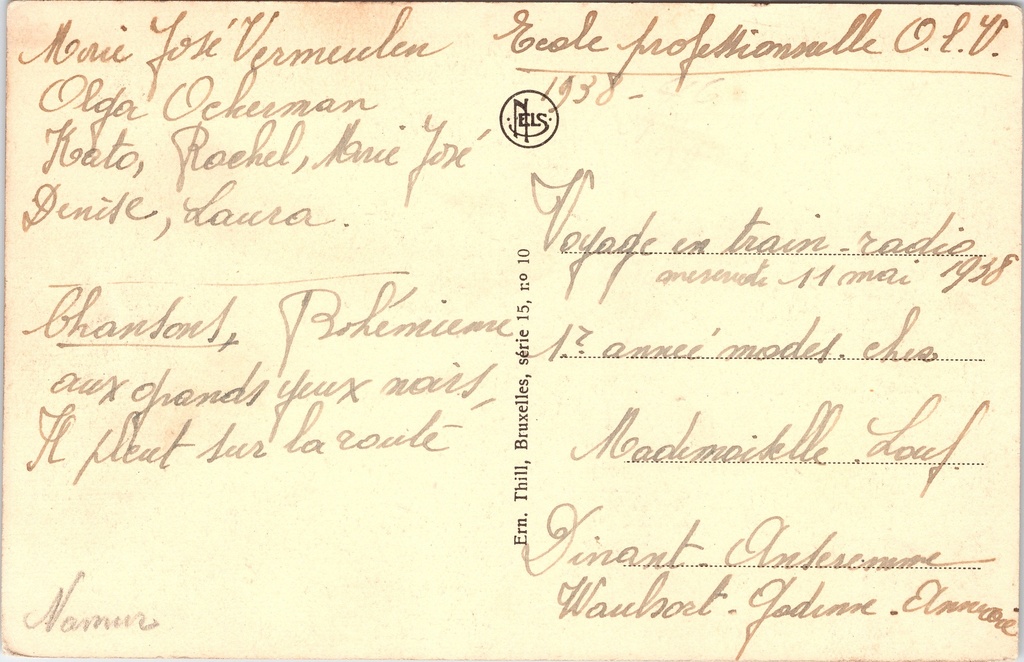 Marie José Vermeulen
Olga Ockerman
Kato, Rachel, Marie José
Denise, Laura.
Chansons, Bohémienne
aux grands yeux noirs,
Il pleut sur la route
Namur
Ecole professionnelle O.L.V.
1938 -
NELS
Ern. Thill, Bruxelles, série 15, no 10
Voyage en train-radio
11 mai 1938
1re année modes. chez
Mademoiselle. Louf.
Dinant. Anseremme
Waulsort - Godinne. Annevoie